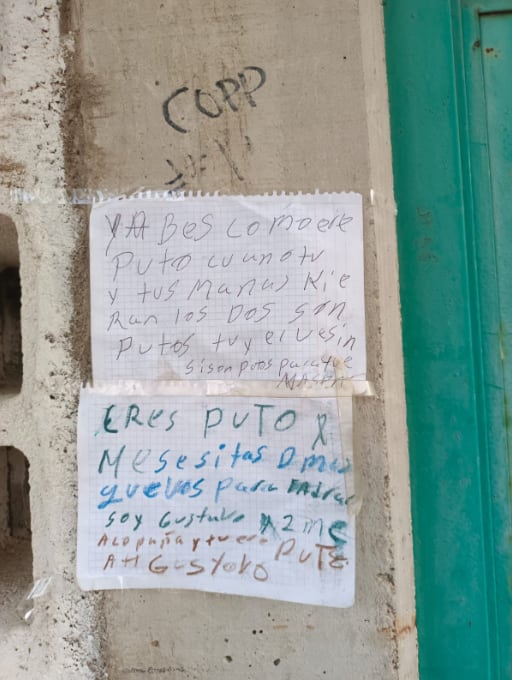 COPP
YA Bes comoere
puto cuanotu
y tus Manas Kie
Ran los Dos son
putos tuy el vesin
si son putos para que
ERes PUTO X
Mesesitas D mas
guevos para
soy Gustavo X2 Me
Acopaña y tu ere PUTE
AH Gustovo